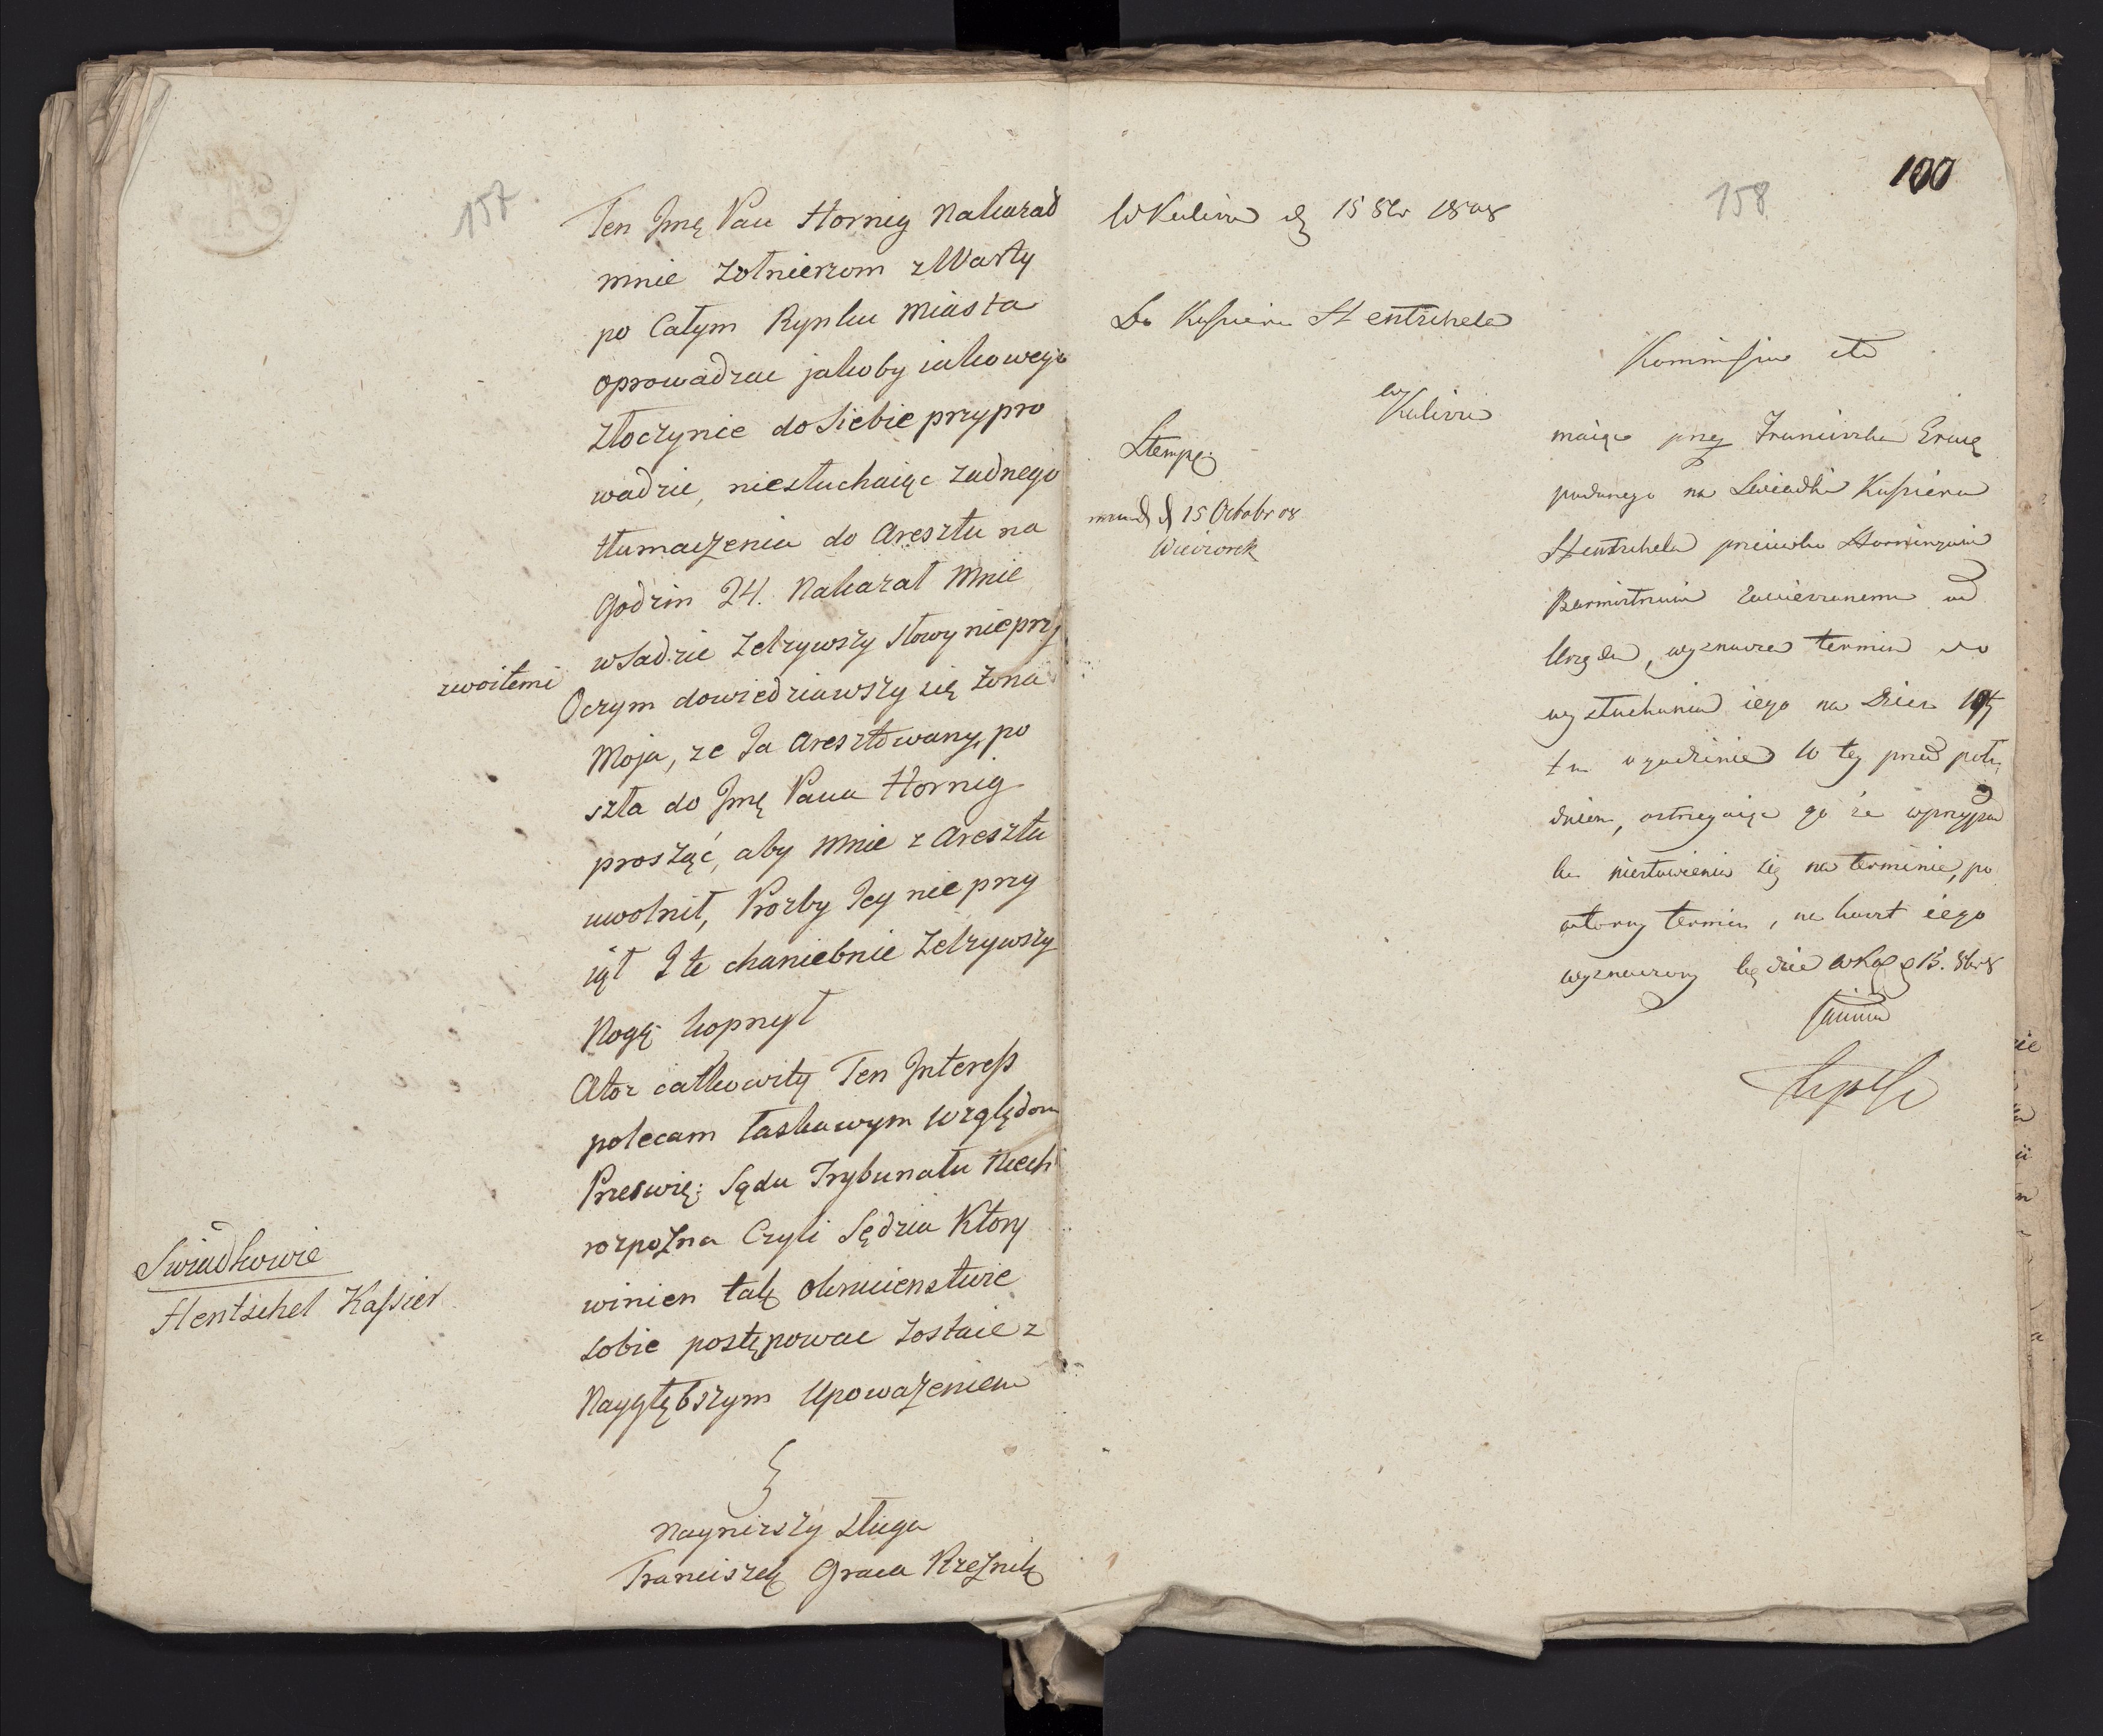 157
Ten Jmę Pan Hornig nakazał
mnie żołnierzom z Warty
po Całym Rynku Miasta
oprowadzac jakoby iakowego
złoczynce do Siebie przypro
wadzic, niesłuchaiąc zadnego
tłumaczenia do Aresztu na
Godzin 24. Nakazał Mnie
wsadzic Zelzywszy słowy nieprzy
zwoitemi
Oczym dowiedziawszy się Zona
Moja, ze Ja Aresztowany, po
szła do Jmę Pana Hornig
prosząć, aby Mnie z Aresztu
uwolnił, Prozby Jey nie przy
iął I te chaniebnie Zelzywszy
Nogą kopnył
Atoz całkowity Ten Interess
polecam łaskawym Względom
Przeswię: Sądu Trybunału Niech
rozpozna Czyli Sędzia Ktory
winien tak okrucienstwie
sobie postępowac zostaie z
Naygłębszym Upowazeniem
Nayniższy sługa
Franciszek Graca Rzeznik
Swiadkowie
Hentschel Kassier
100
158
W Kulivie d 15 8br 1808
Do Kassiera Hentschela
w
Kulivie
Stempel
mund d 15 Octobr 08
Wieczorek
Kommissia etc
maiąc przez Franciszka Gracę
podanego na Swiadka Kassiera
Hentschela przeciwko Horningowi
Burmistrzowi zawieszonemu od
Urzędu, wyznacza termin do
wysłuchania iego na Dzien
t m o godzinie 10 tey przed połu
dniem, ostrzegaiąc go że w przypad
ku niestawienia się na terminie, po
wtorny termin, na koszt iego
wyznaczony będzie 15. 8br 8